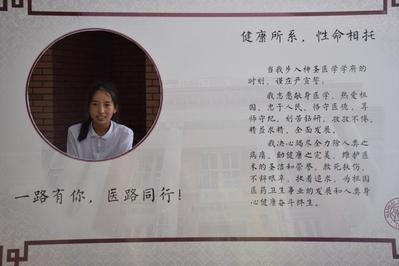 健康所系，性命相托
当我步入神圣医学学府的
时刻，谨庄严宣誓：
我志愿献身医学，热爱祖
国，忠于人民，恪守医德，尊
师守纪，刻苦钻研，孜孜不倦，
精益求精，全面发展。
我决心竭尽全力除人类之
病痛，助健康之完美，维护医
术的圣洁和荣誉，救死扶伤，
不辞艰辛，执着追求，为祖国
医药卫生事业的发展和人类身
心健康奋斗终生。
一路有你，医路同行！